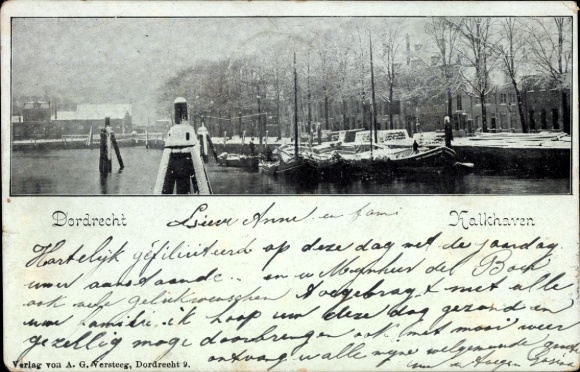 Dordrecht
Kalkhaven
Lieve Anne en fami
Hartelijk gefiliciteerd op deze dag met de
uwer aanstaande en u Mynheer del
ook alle gelukwenschen toegebragt met alle
uw familie ik hoop um deze dag gezond en
gezellig moge doorbrengen ook met mooi weer
ontvang u alle mijne welgemeende groete
Verlag von A. G. Versteeg, Dordrecht 9.
van de